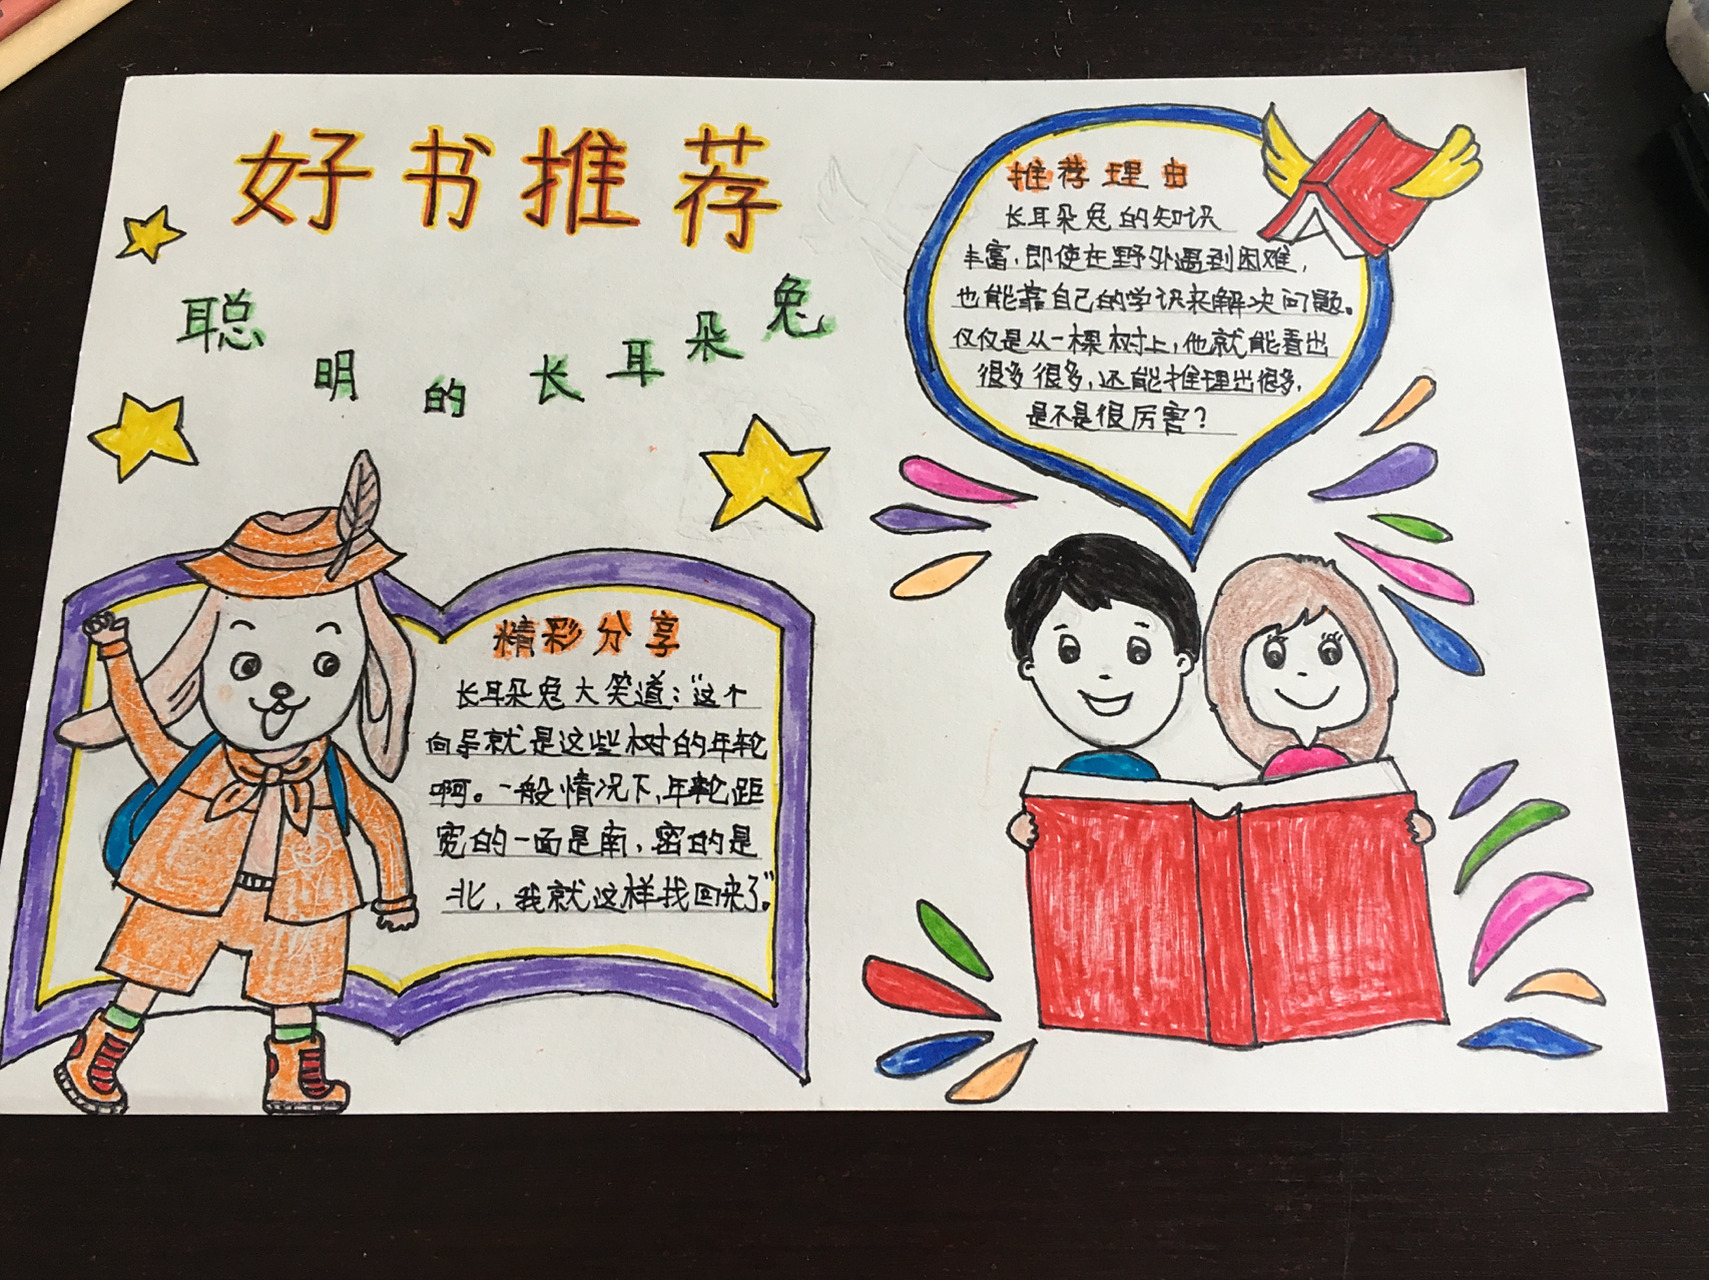 好书推荐
聪明的长耳朵兔
推荐理由
长耳朵兔的知识
丰富，即使在野外遇到困难，
也能靠自己的学识来解决问题。
仅仅是从一棵树上，他就能看出
很多很多，还能推理出很多，
是不是很厉害？
精彩分享
长耳朵兔大笑道：“这个
向导就是这些树的年轮
啊。一般情况下，年轮距
宽的一面是南，密的是
北，我就这样找回来了”。